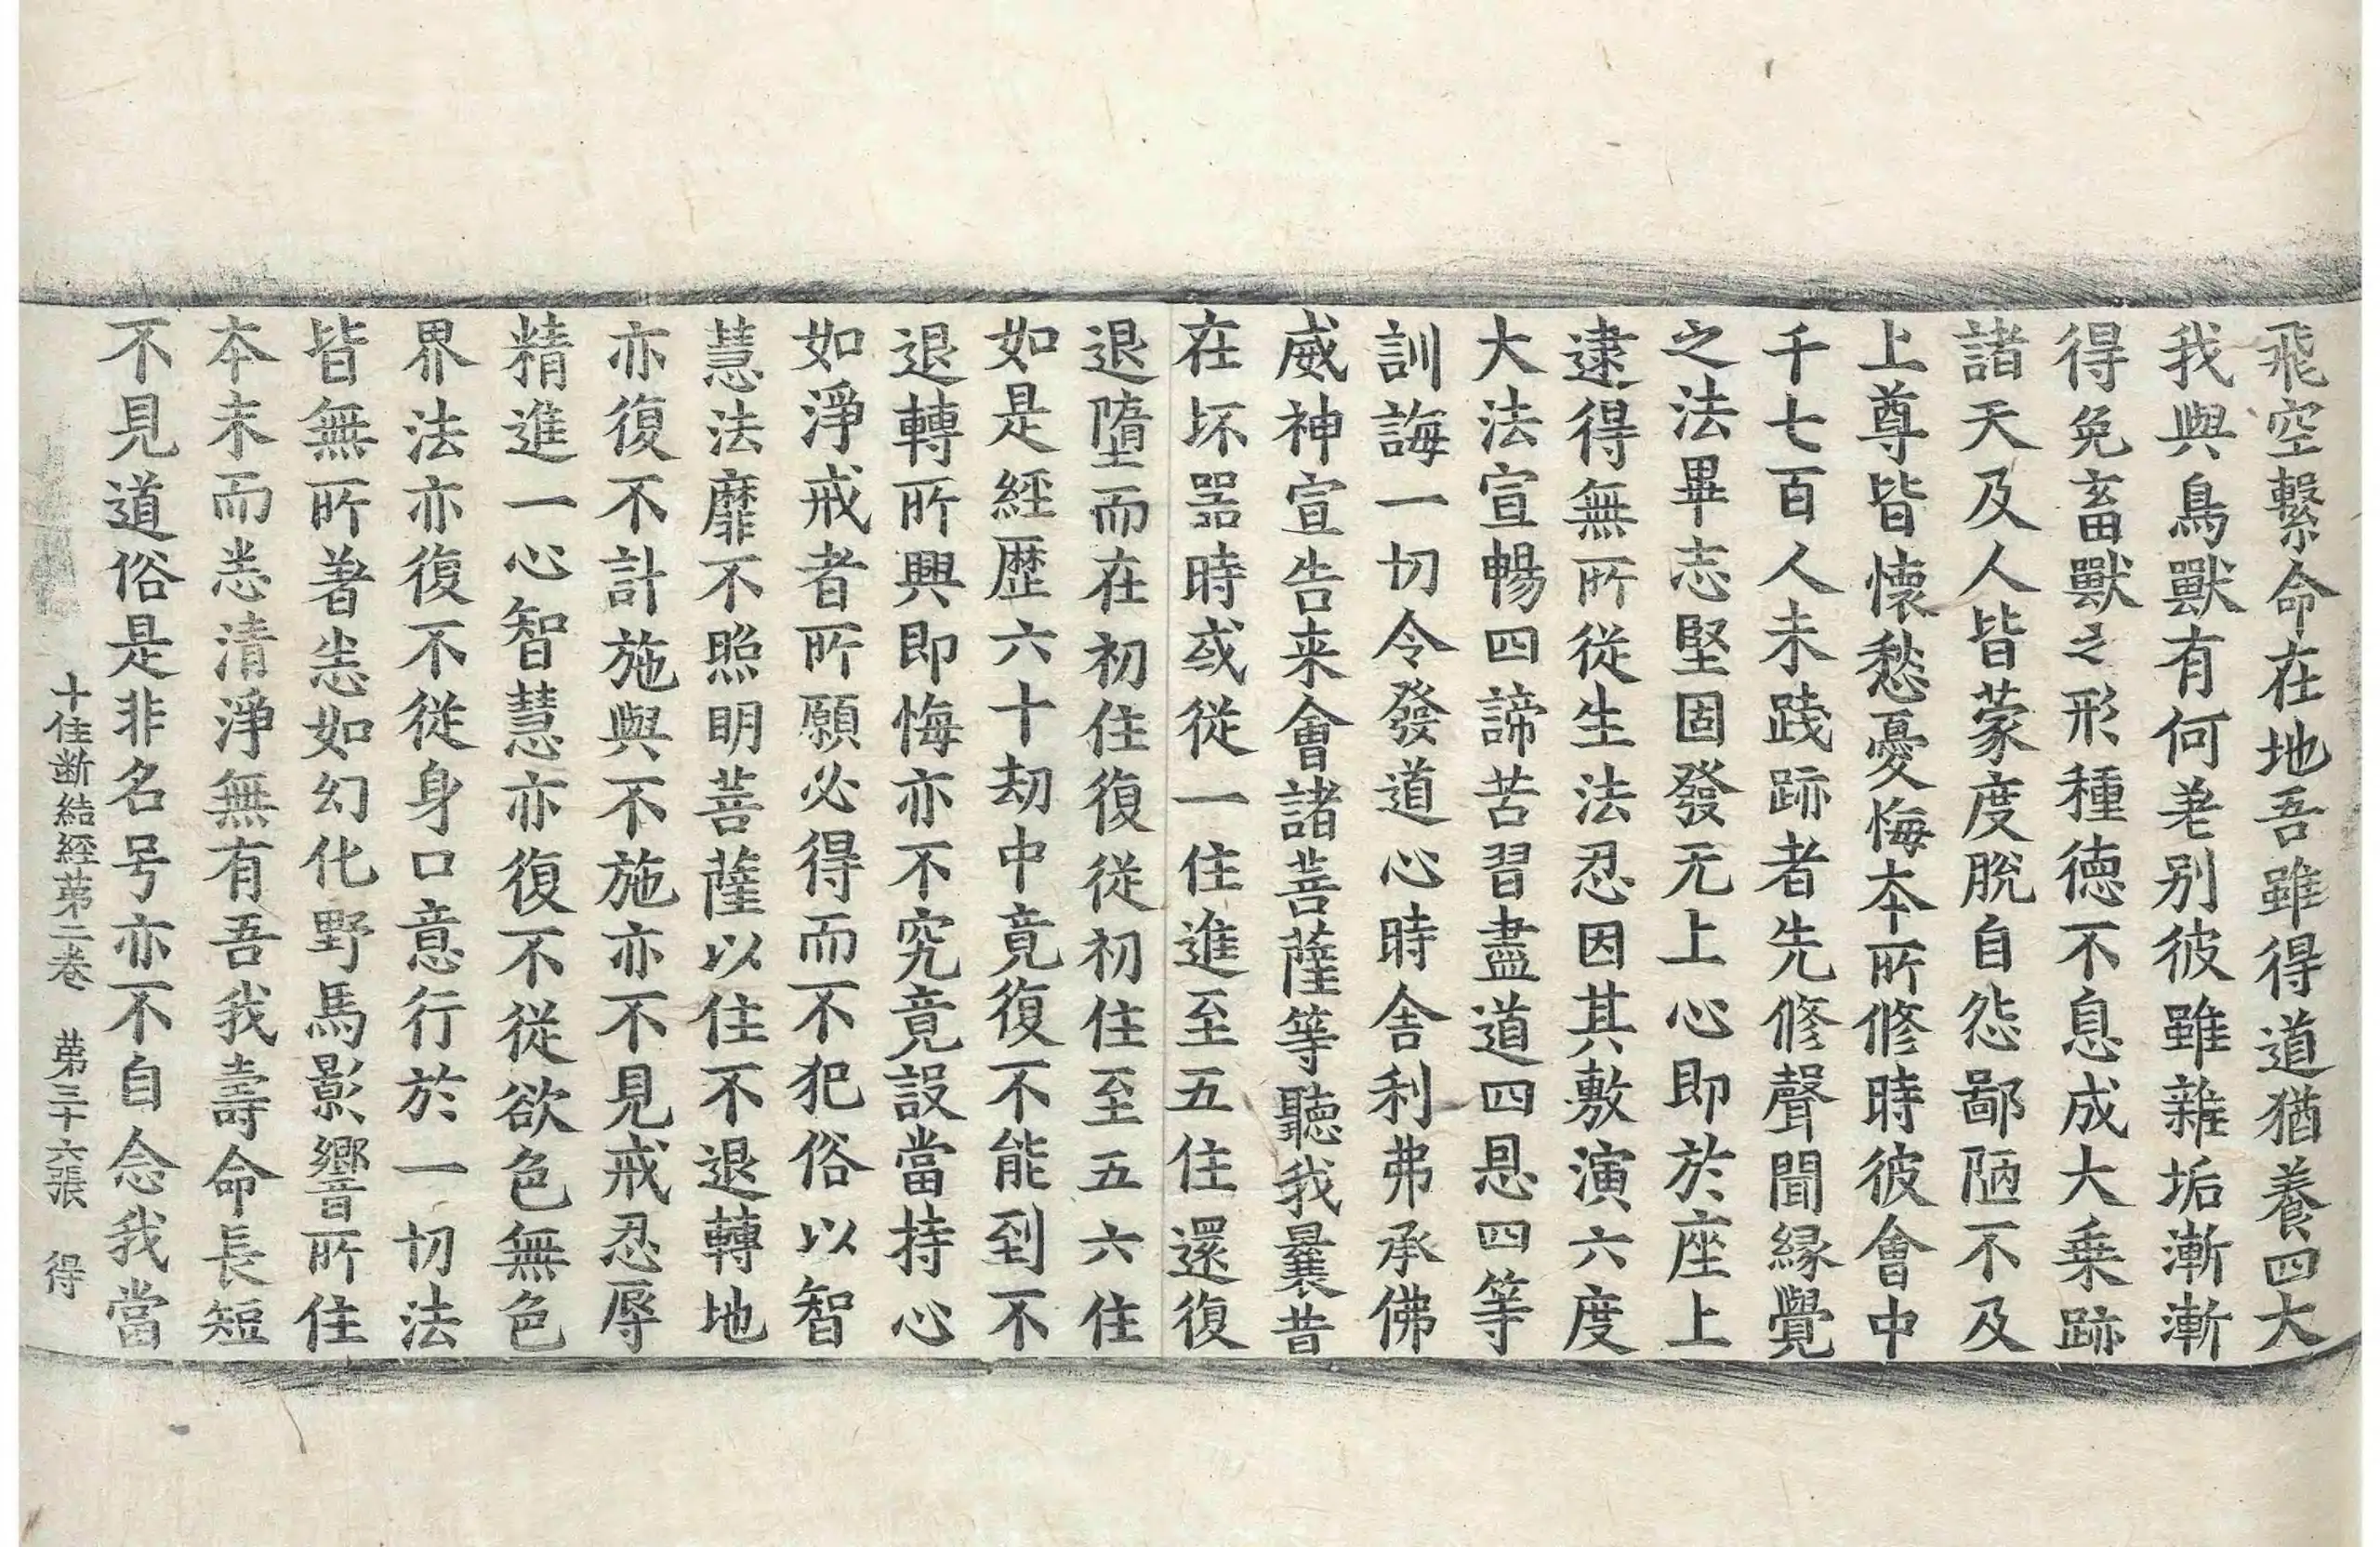 飛空繫命在地吾雖得道猶養四大
我與鳥獸有何差别彼雖雜垢漸漸
得免畜獸之形種德不息成大乗跡
諸天及人皆蒙度脫自怨鄙陋不及
上尊皆懷愁憂悔本所修時彼會中
千七百人未踐跡者先修聲聞緣覺
之法畢志堅固發无上心即於座上
逮得無所從生法忍因其敷演六度
大法宣暢四諦苦習盡道四恩四等
訓誨一切令發道心時舍利弗承佛
威神宣告来會諸菩薩等聽我曩昔
在坏器時或從一住進至五住還復
退墮而在初住復從初住至五六住
如是經歷六十劫中竟復不能到不
退轉所興即悔亦不究竟設當持心
如淨戒者所願必得而不犯俗以智
慧法靡不照明菩薩以住不退轉地
亦復不計施與不施亦不見戒忍辱
精進一心智慧亦復不從欲色無色
界法亦復不從身口意行於一切法
皆無所著恙如幻化野馬影響所住
本末而恙清淨無有吾我壽命長短
不見道俗是非名号亦不自念我當
十住断結經第二卷　第三十六張　得